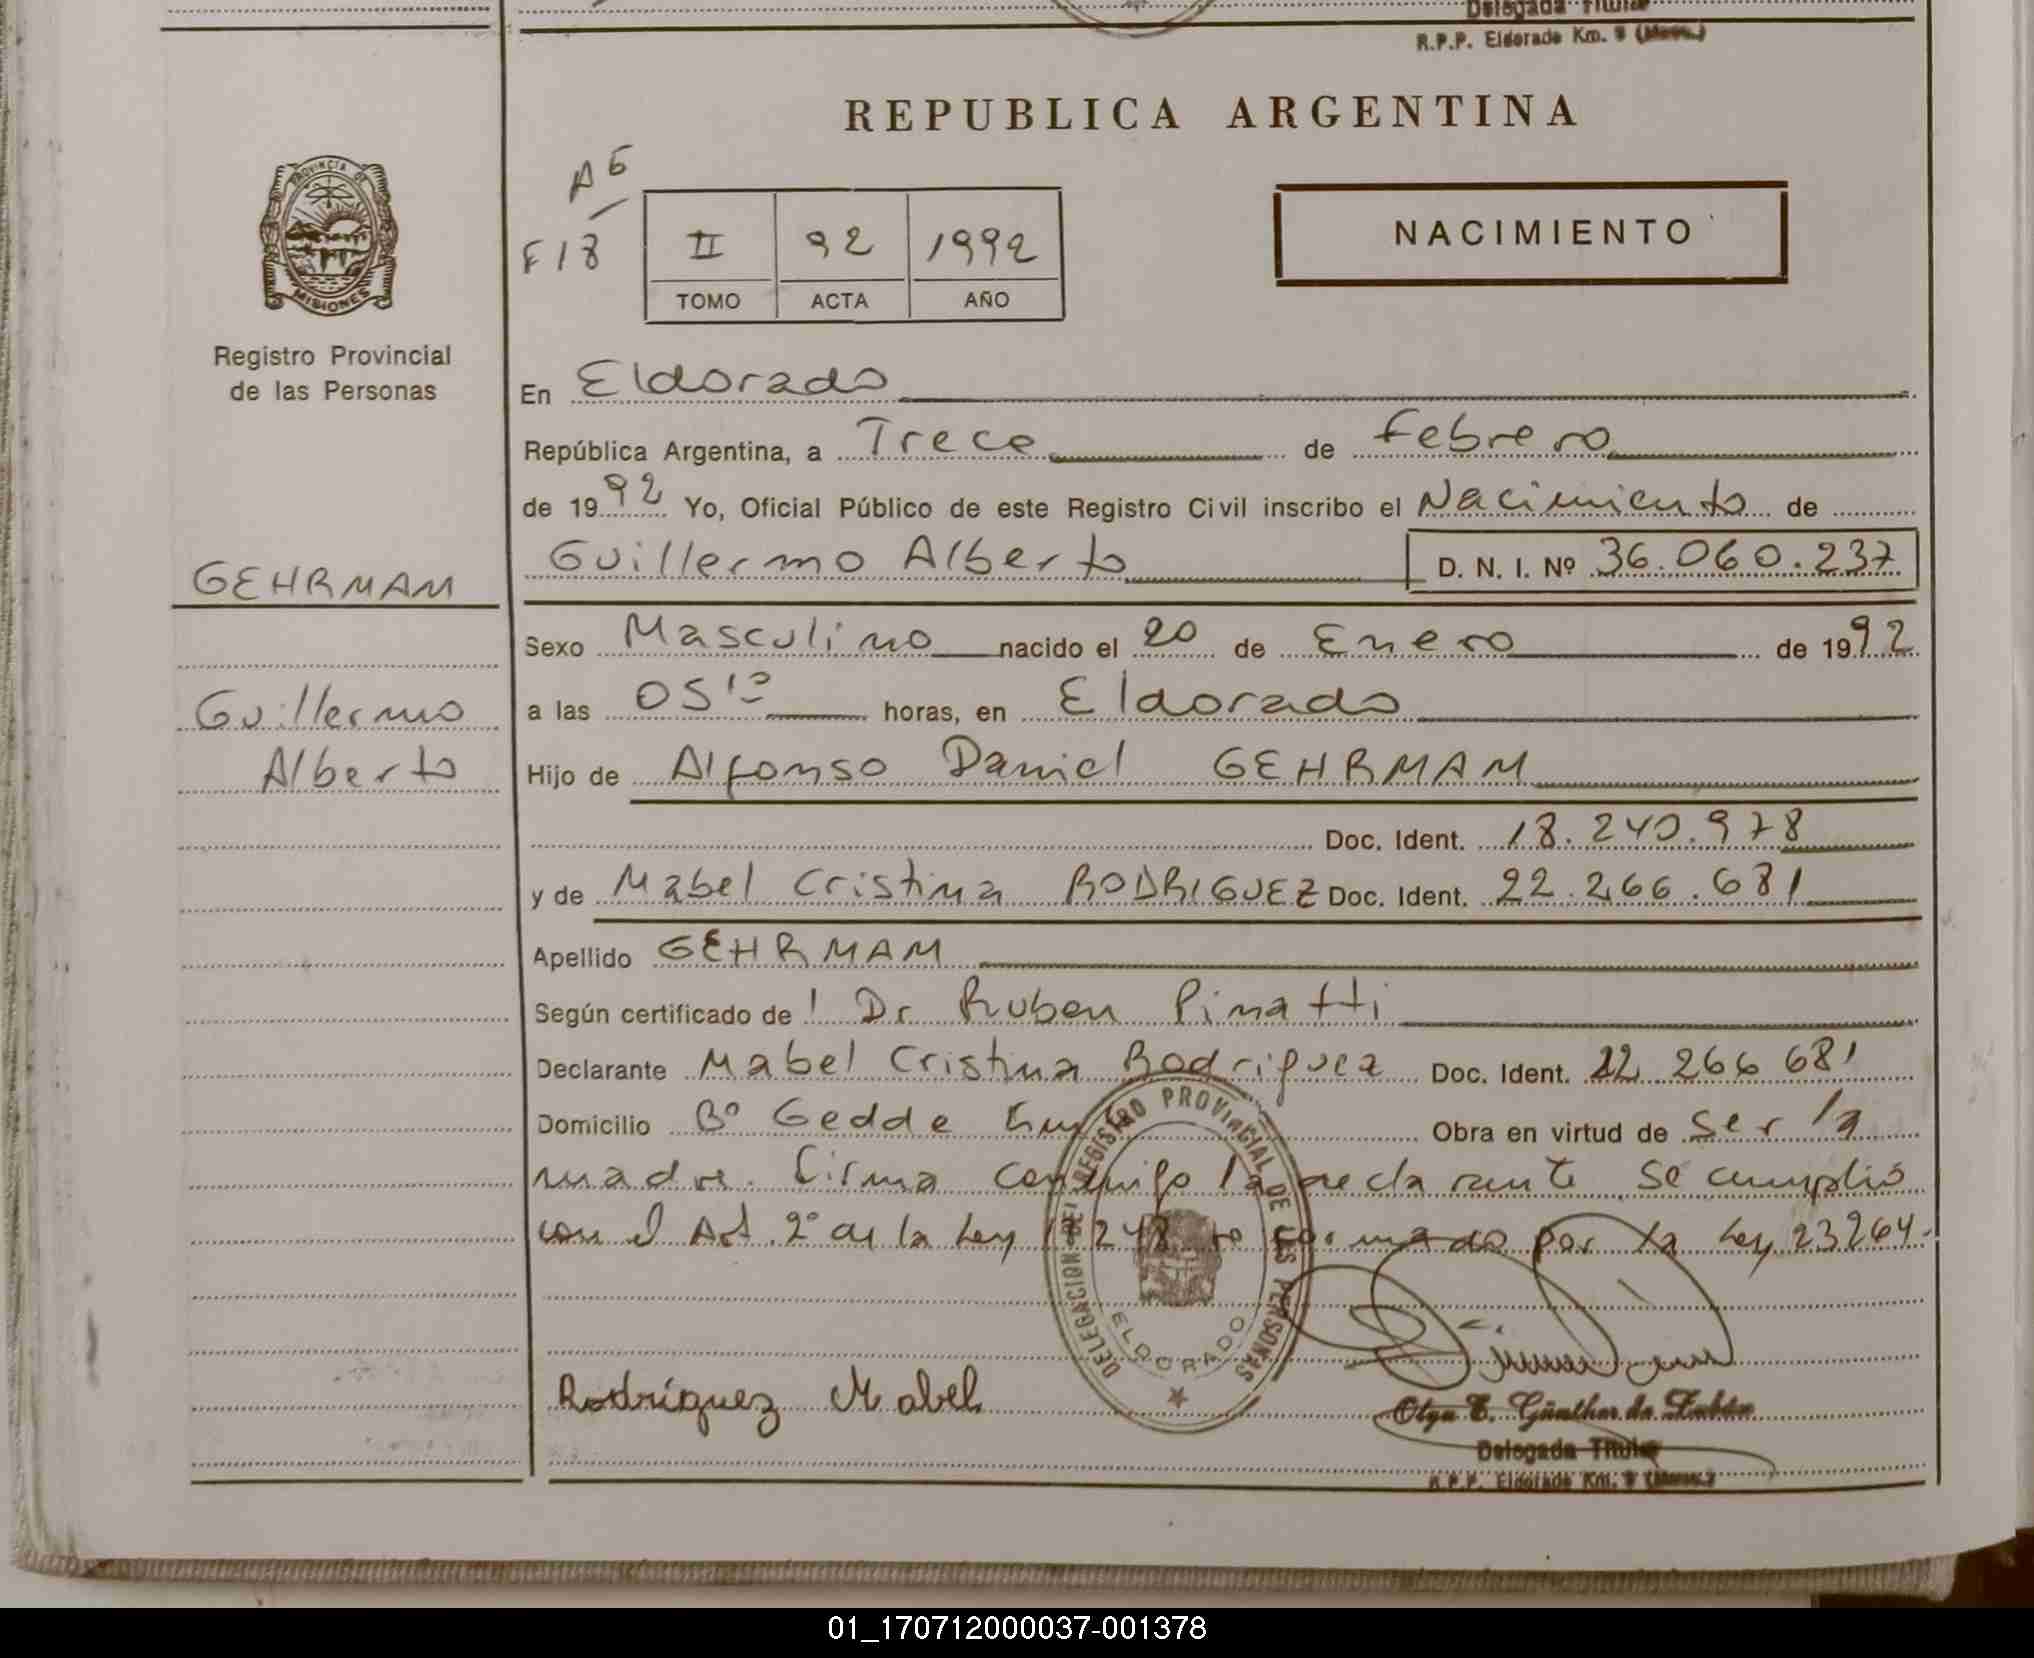 Delegada Titular
R.P.P. Eldorado Km. 9 (Mnes.)
REPUBLICA ARGENTINA
PROVINCIA DE
MISIONES
Registro Provincial
de las Personas
A 6
F 18
II 92 1992
TOMO ACTA AÑO
NACIMIENTO
En Eldorado
República Argentina, a Trece de Febrero
de 1992 Yo, Oficial Público de este Registro Civil inscribo el Nacimiento de
GEHRMAM
Guillermo Alberto D. N. I. Nº 36.060.237
Sexo Masculino nacido el 20 de Enero de 1992
Guillermo
Alberto
a las 05 10 horas, en Eldorado
Hijo de Alfonso Daniel GEHRMAM
Doc. Ident. 18.240.978
y de Mabel Cristina RODRIGUEZ Doc. Ident. 22.266.681
Apellido GEHRMAM
Según certificado de Dr Ruben Pinatti
Declarante Mabel Cristina Rodriguez Doc. Ident. 22 266 681
Domicilio Bº Gedde Obra en virtud de ser la
madre. Firma conmigo la declarante Se cumplió
con el Art. 2º de la Ley 18 248 reformado por la Ley 23264.
DELEGACION DEL REGISTRO PROVINCIAL DE LAS PERSONAS
ELDORADO
Rodríguez Mabel
Olga E. Günther de
Delegada Titular
R.P.P. Eldorado Km. 9 (Mnes.)
01_170712000037-001378